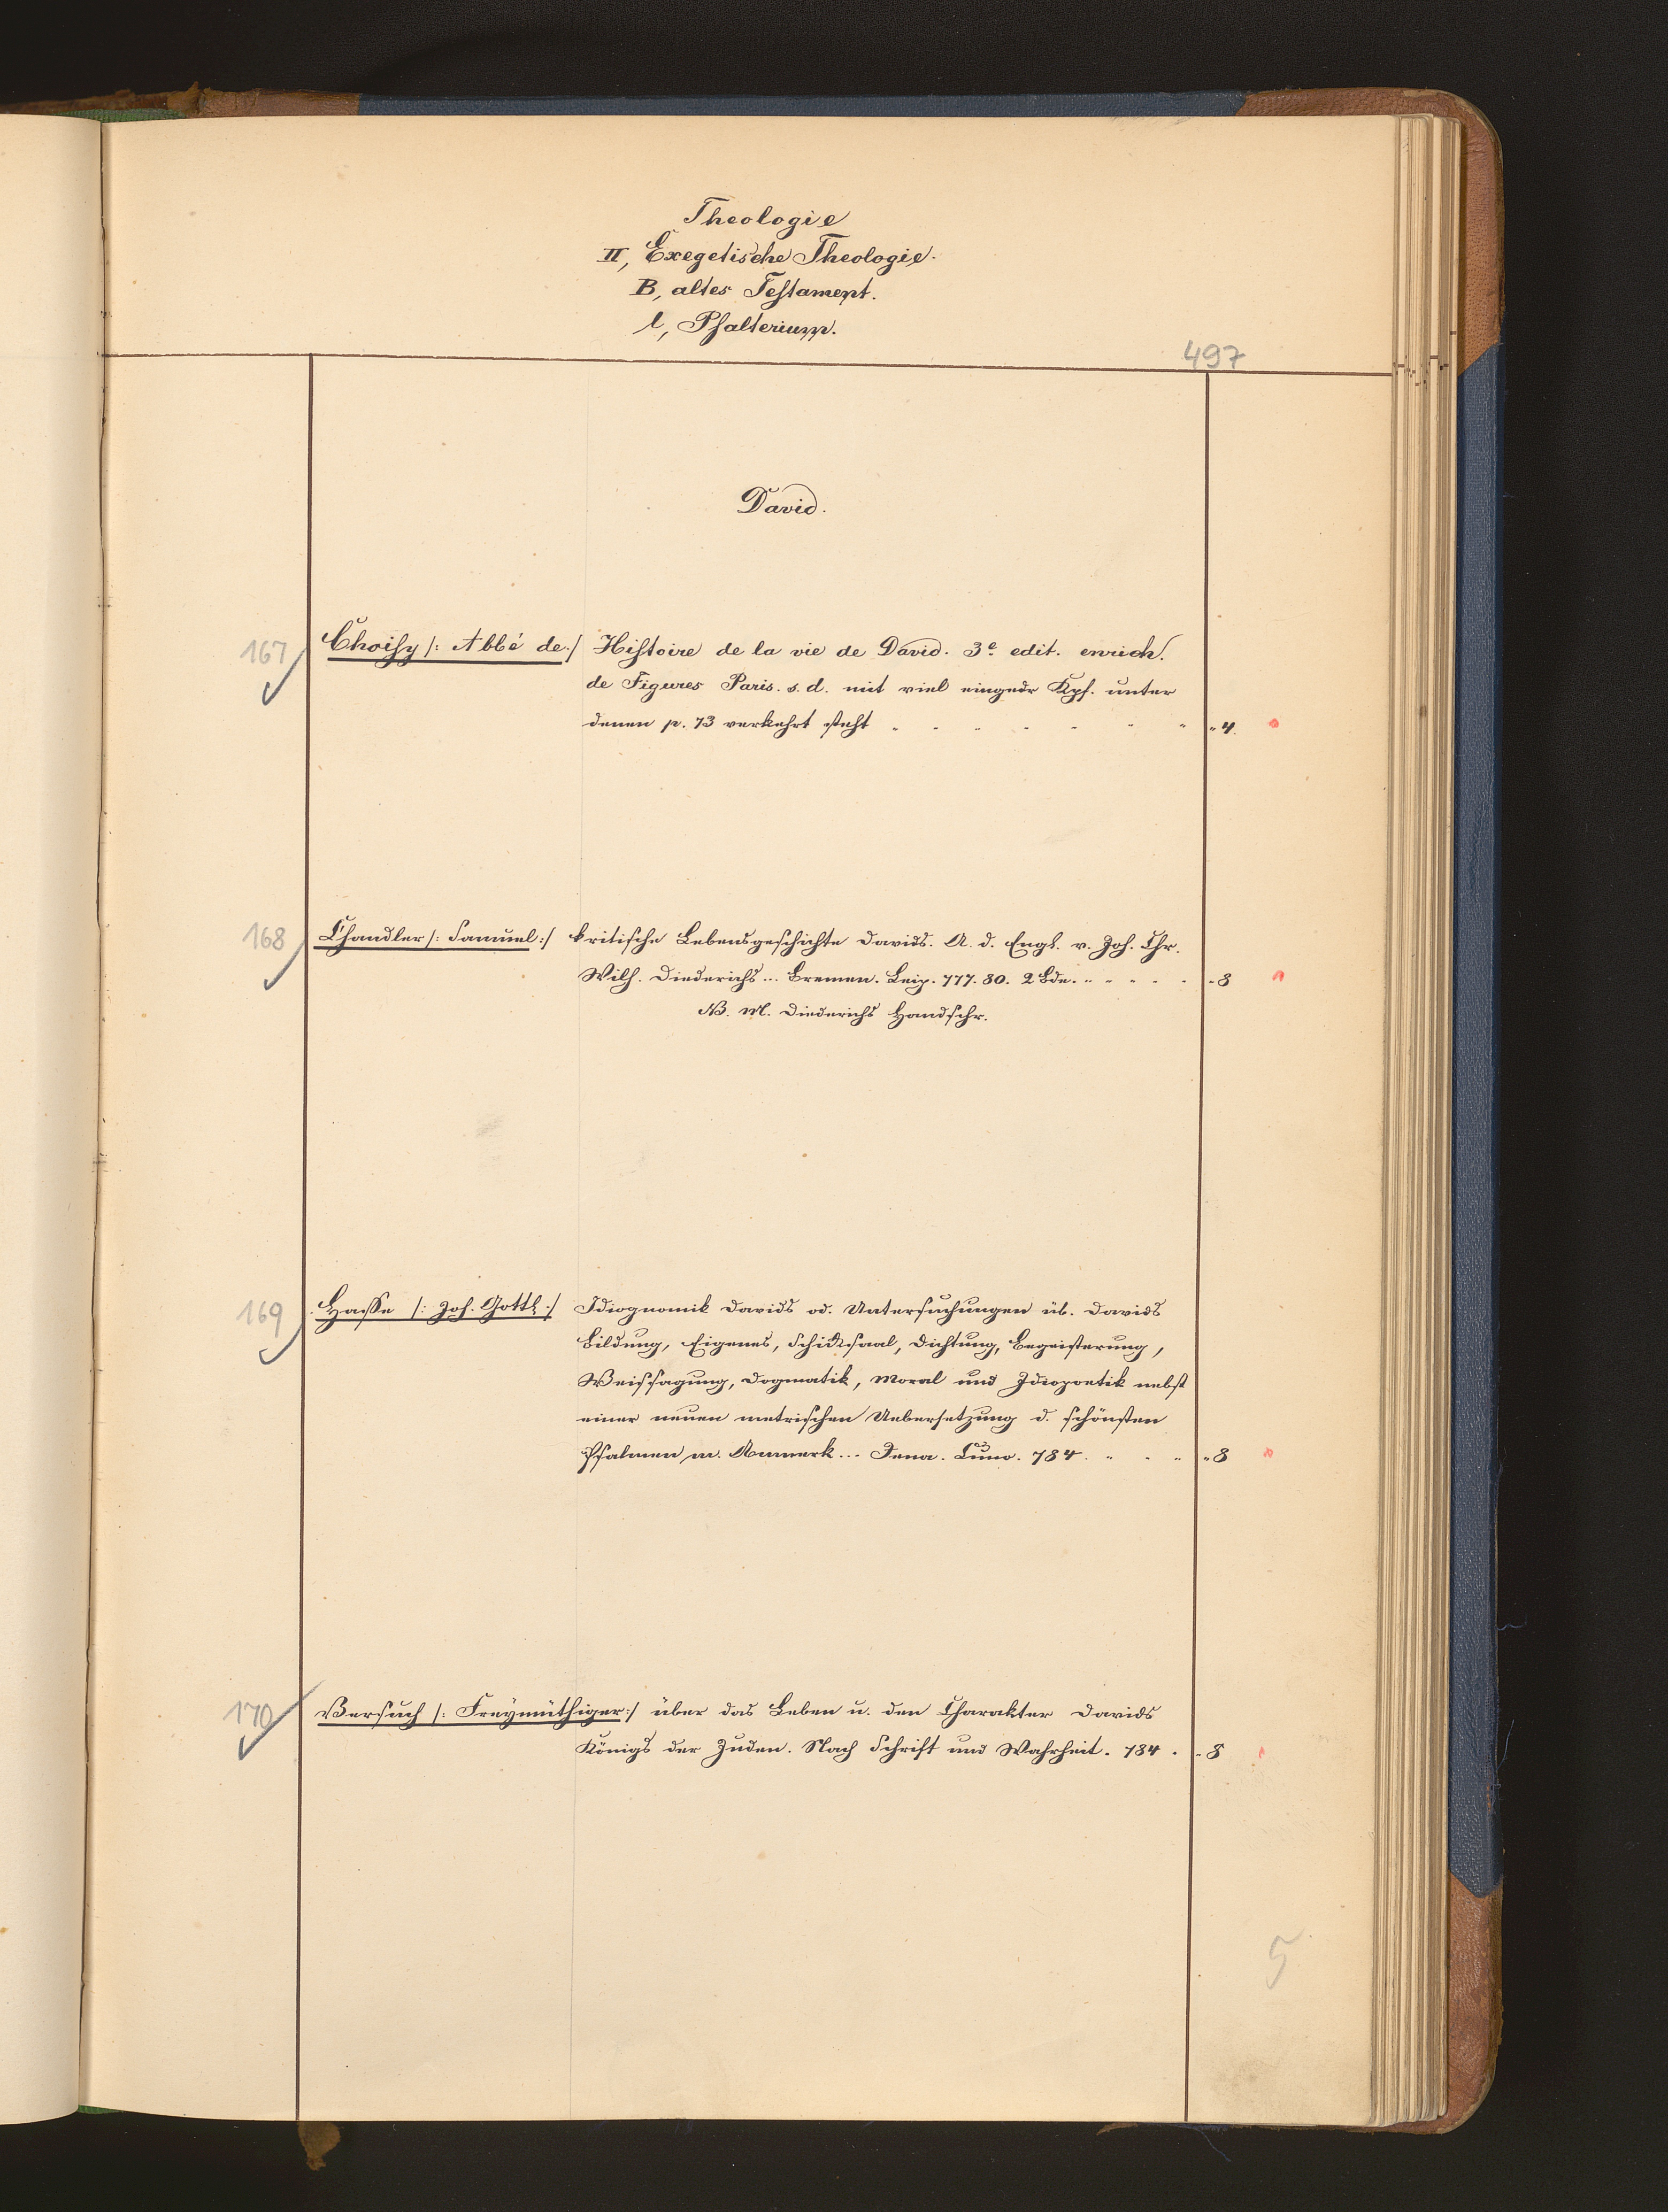 Theologie
II, Exegetische Theologie.
B, altes Testament.
l, Psalterium.
497
David.
167 Choisy /: Abbé de :/ Histoire de la vie de David. 3e edit. enrich.
de Figures Paris. s. d. mit viel eingedr Kpf. unter
denen p. 73 verkehrt steht " " " " " " " " 4.
168 Chandler /: Samuel :/ kritische Lebensgeschichte Davids. A. d. Engl. v. Joh. Chr.
Wilh. Diederichs... Bremen. Leip. 777. 80. 2 Bde. " " " " " " 8
NB. M. Diederichs Handschr.
169 Hasse /: Joh. Gottl. :/ Idiognomik Davids od. Untersuchungen üb. Davids
Bildung, Eigenes, Schicksaal, Dichtung, Begeisterung,
Weissagung, Dogmatik, Moral und Idiopoetik nebst
einer neuen metrischen Uebersetzung d. schönsten
Psalmen m. Anmerk... Jena. Cuno. 784. " " " " 8
170 Versuch /: Freymüthiger :/ über das Leben u. den Charakter Davids
Königs der Juden. Nach Schrift und Wahrheit. 784 . " 8
5